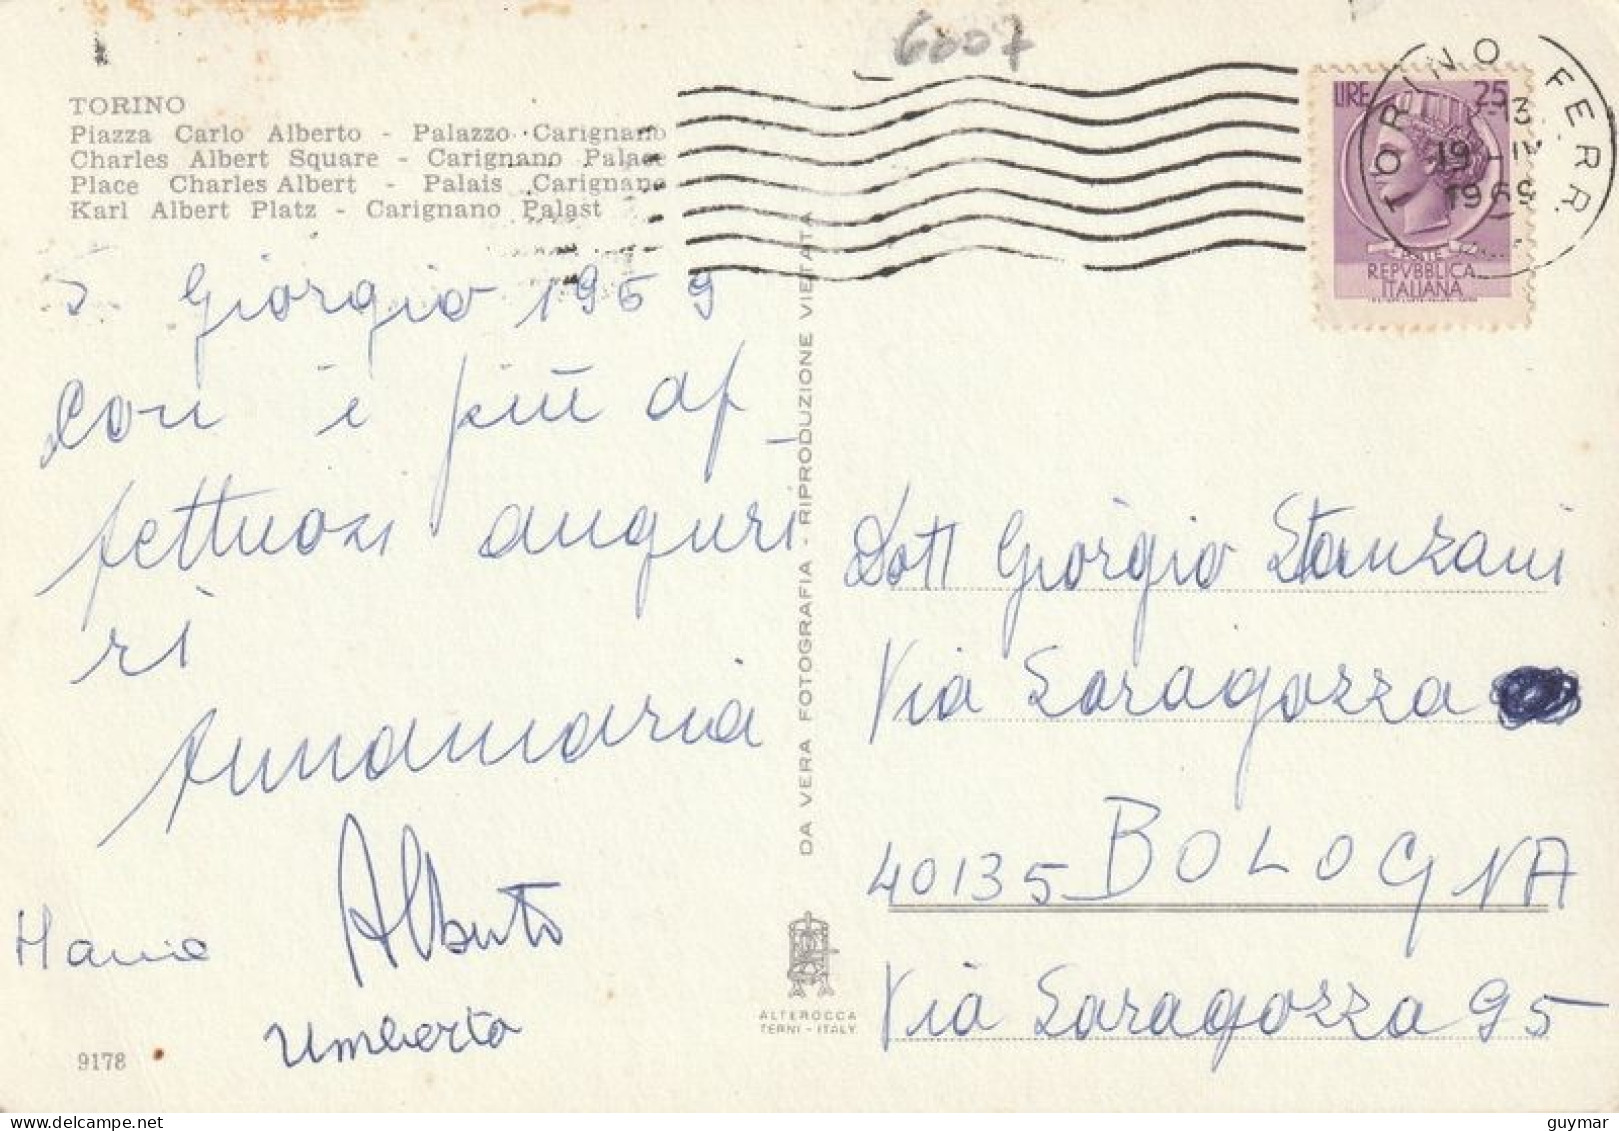 6007
TORINO
Piazza Carlo Alberto - Palazzo Carignano
Charles Albert Square - Carignano Palace
Place Charles Albert - Palais Carignano
Karl Albert Platz - Carignano Palast
LIRE 25
REPVBBLICA
ITALIANA
TORINO FERR.
-13
19-IV
1969
S. Giorgio 1969
Con i più af-
fettuosi auguri
ri
Annamaria
Alberto
Umberto
9178
DA VERA FOTOGRAFIA - RIPRODUZIONE VIETATA
ALTEROCCA
TERNI - ITALY
Dott Giorgio Stanzani
Via Saragozza
40135 BOLOGNA
Via Saragozza 95
guymar